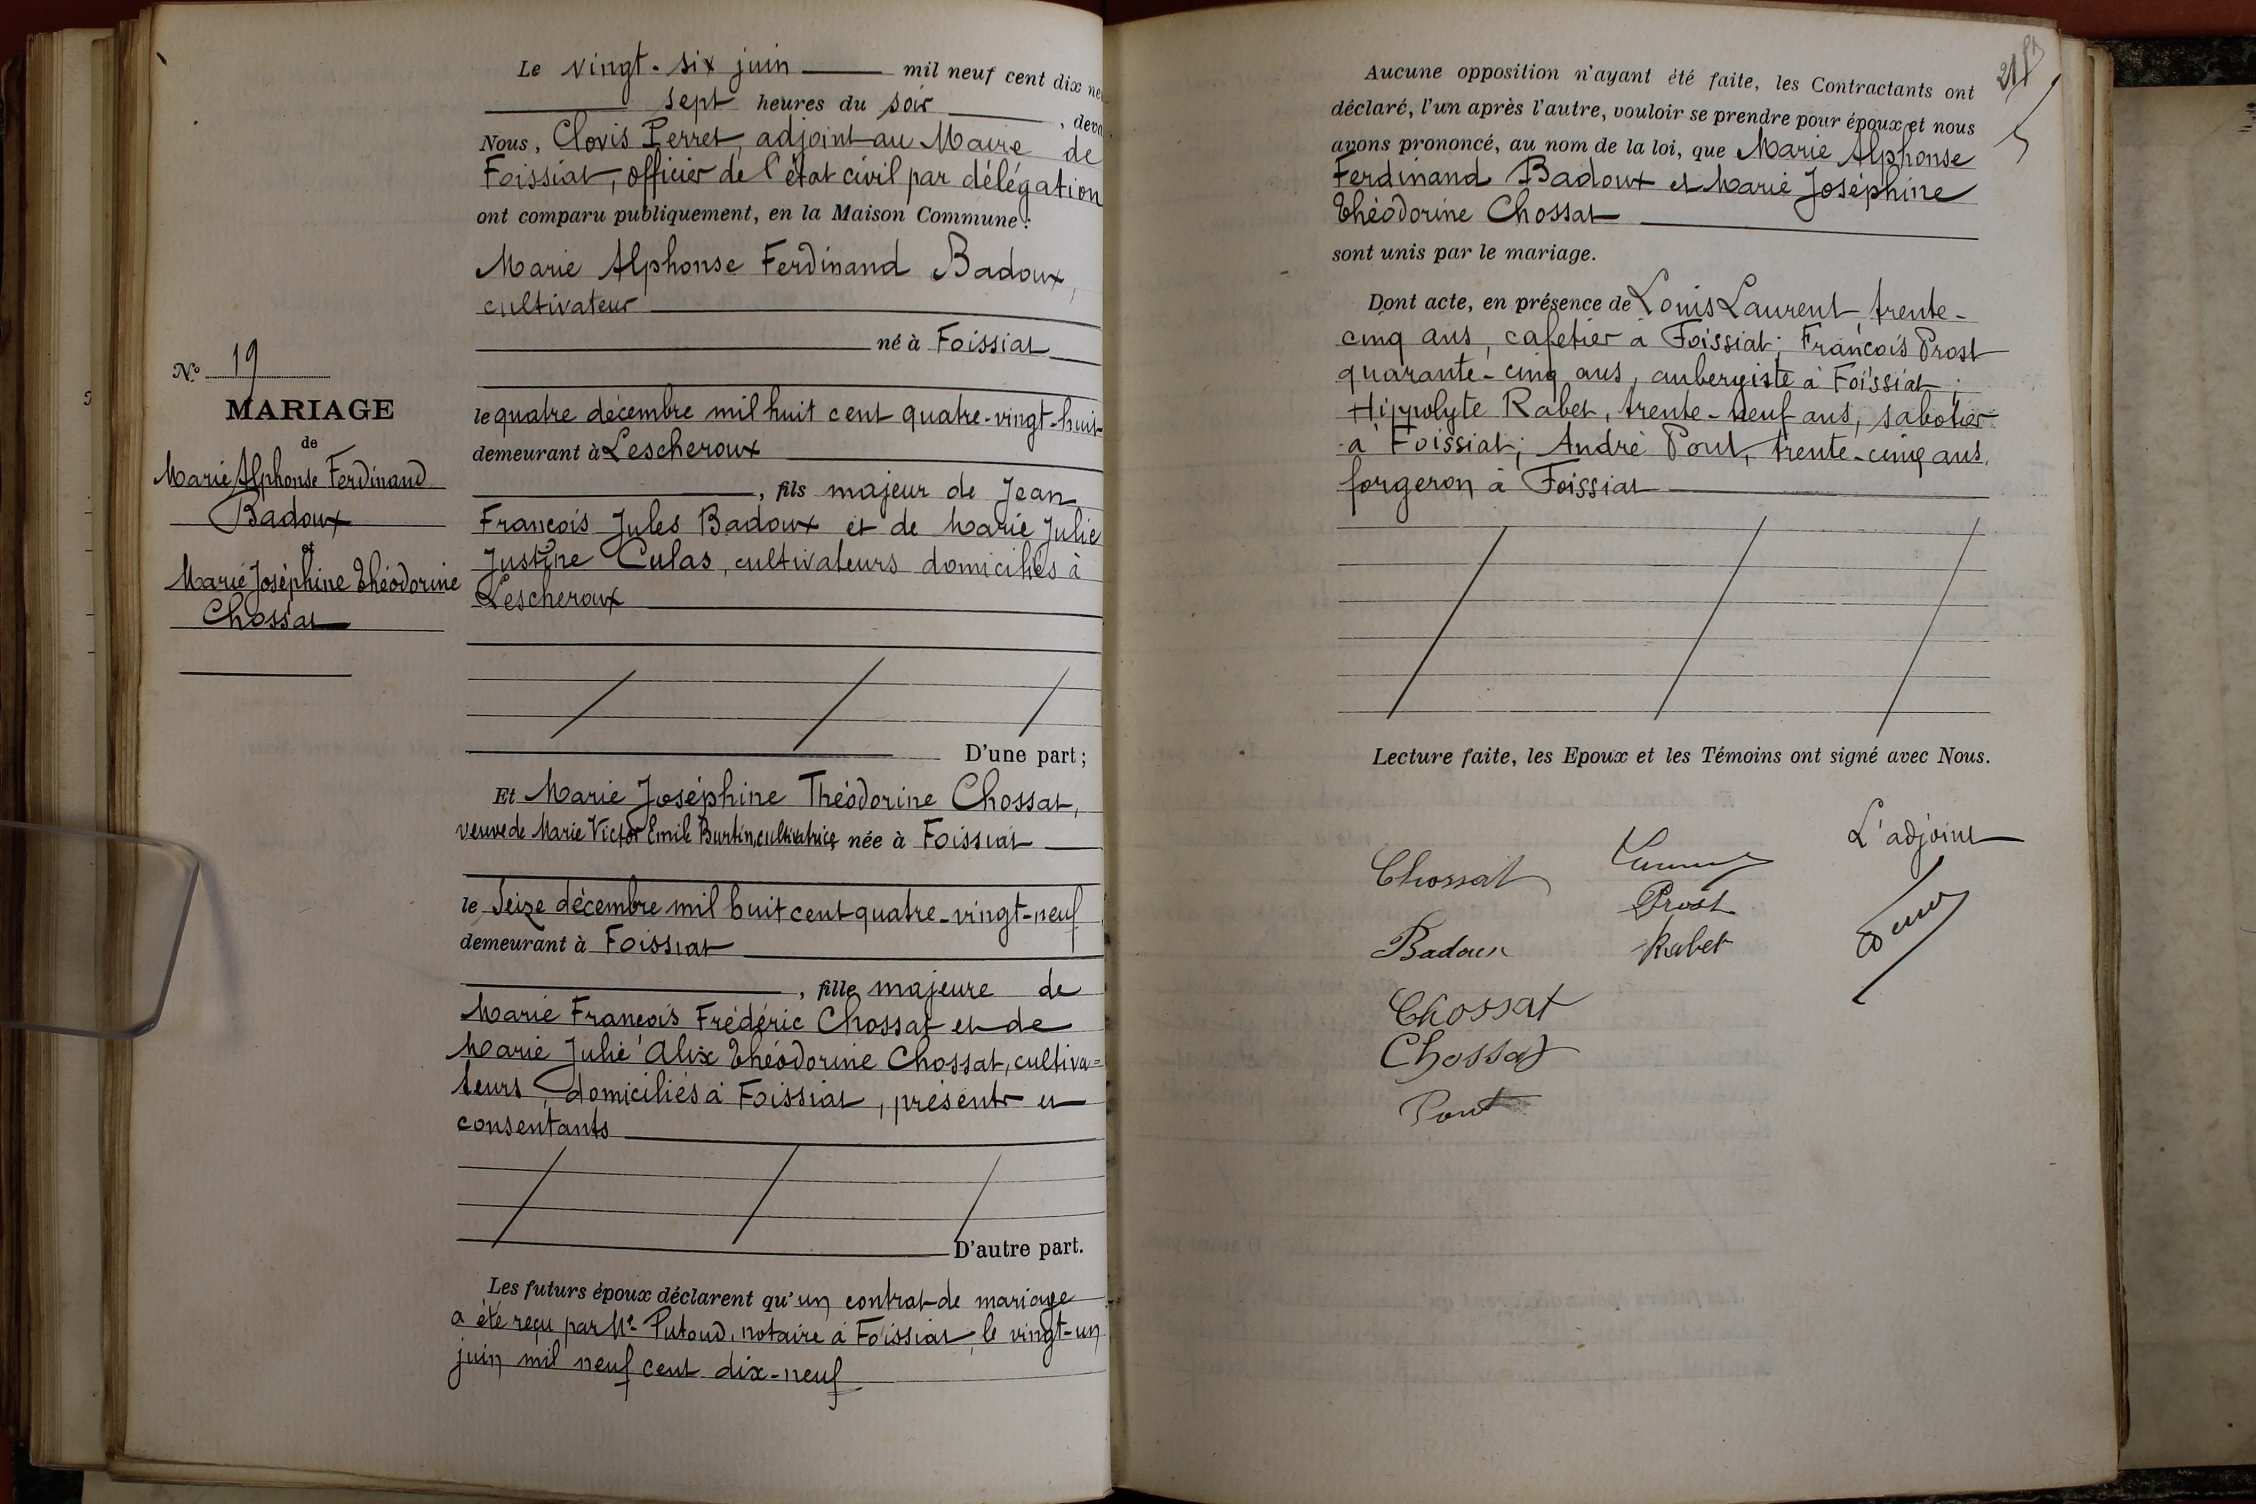 Le vingt-six juin mil neuf cent dix ne
sept heures du soir, deva
Nous, Clovis Perret, adjoint au Maire de
Foissiat, officier de l'état civil par délégation
ont comparu publiquement, en la Maison Commune :
Marie Alphonse Ferdinand Badoux,
cultivateur
né à Foissiat
le quatre décembre mil huit cent quatre-vingt-huit
demeurant à Lescheroux
, fils majeur de Jean
François Jules Badoux et de Marie Julie
Justine Culas, cultivateurs domiciliés à
Lescheroux
D'une part ;
Et Marie Joséphine Théodorine Chossat,
veuve de Marie Victor Emile Burtin, cultivatrice née à Foissiat
le seize décembre mil huit cent quatre-vingt-neuf
demeurant à Foissiat
, fille majeure de
Marie François Frédéric Chossat et de
Marie Julie Alix Théodorine Chossat, cultiva=
teurs, domiciliés à Foissiat, présents et
consentants
D'autre part.
Les futurs époux déclarent qu'un contrat de mariage
a été reçu par Me Putoud, notaire à Foissiat, le vingt-un
juin mil neuf cent dix-neuf
No 19
MARIAGE
de
Marie Alphonse Ferdinand
Badoux
et
Marie Joséphine Théodorine
Chossat
Aucune opposition n'ayant été faite, les Contractants ont
déclaré, l'un après l'autre, vouloir se prendre pour époux et nous
avons prononcé, au nom de la loi, que Marie Alphonse
Ferdinand Badoux et Marie Joséphine
Théodorine Chossat
sont unis par le mariage.
Dont acte, en présence de Louis Laurent, trente-
cinq ans, cafetier à Foissiat ; François Prost
quarante-cinq ans, aubergiste à Foissiat ;
Hippolyte Rabet, trente-neuf ans, sabotier
à Foissiat ; André Pont, trente-cinq ans,
forgeron à Foissiat
Lecture faite, les Epoux et les Témoins ont signé avec Nous.
L'adjoint
Chossat
Laurent
Prost
Badoux
Rabet
Perret
Chossat
Chossat
Pont